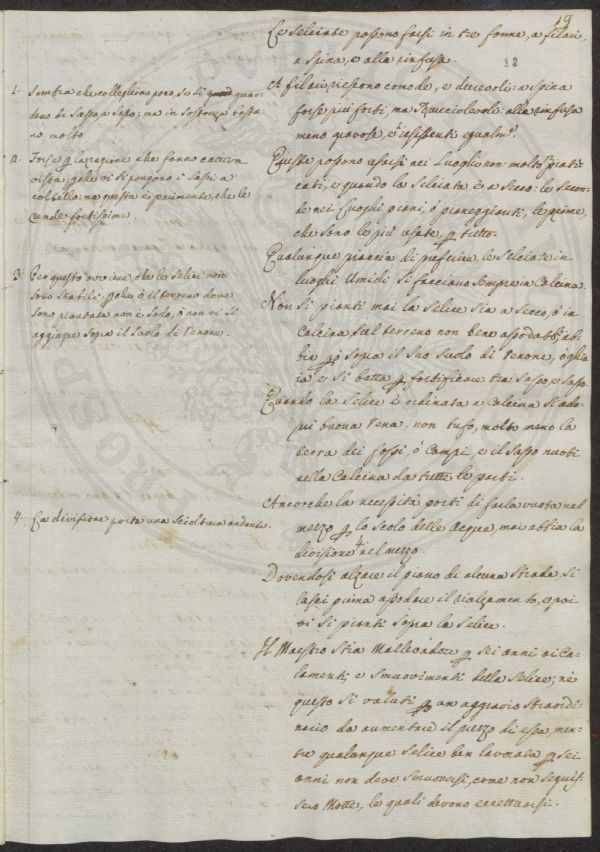 19
12
Le Seliciate possono farsi in tre forme, a filari,
a Spina, e alla rinfusa.
A filari riescono comode, e durevoli: a Spina
forse più forti, ma Sdrucciolevoli: alla rinfusa
meno gravose, e resistenti egualm.e
Queste possono usarsi nei Luoghi non molto pratti
cati, e quando la Seliciata è a Secco: le Secon-
de nei Luoghi piani, ó pianeggianti, le prime,
che sono le più usate, p tutto.
Qualunque piaccia di preferire, le Seliciate in
luoghi Umidi si facciano sempre in Calcina.
Non Si pianti mai la Selice sia a Secco, ó in
Calcina sul terreno non bene assodato, ab-
bia pó sopra il Suo Suolo di Renone, ó ghia
ia e Si batta p fortificare tra Sasso, e Sasso.
Quando la Selice è ordinata a Calcina Si ado-
pri buona rena, non tufo, molto meno la
terra dei fossi, ó Campi, e il Sasso nuoti
nella Calcina da tutte le parti.
Ancorche la necessità porti di farla vuota nel
mezzo p lo Scolo delle Acque, mai abbia la
divisione 4 nel mezzo.
Dovendosi alzare il piano di alcuna Strada, Si
lasci prima assodare il rialzamento, e poi
vi Si pianti sopra la Selice.
Il Maestro Stia Mallevadore p Sei anni ai Ca-
lamenti e Smuovimenti della Selice; né
questo Si valuti p un aggravio Straordi-
nario da aumentare il prezzo di essa, men-
tre qualunque Selice ben lavorata p Sei
anni non deve Smuoversi, come non Seguis
sero Motte, le quali devono eccettuarsi.
1. Sembra che colleghino poco, se Si guar-
dano di Sasso a Sasso; ma in Sostanza lega
no molto
2. Forse p la ragione che fanno cattiva
vista; pche vi Si pongono i Sassi a
coltello: ma questa è parimente, che le
rende fortissime.
3. Per questo avviene, che le Selici non
Sono Stabili: pche ó il terreno dove
Sono piantate non è Sodo, ó non vi Si
aggiunge Sopra il Suolo di Renone.
4. La divisione porta una Scioltura andante.